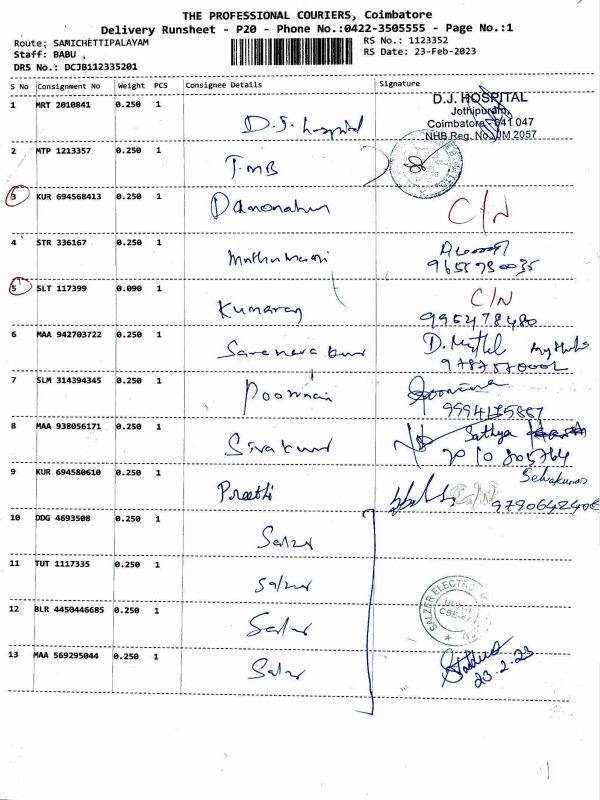 THE PROFESSIONAL COURIERS, Coimbatore
Delivery Runsheet - P20 - Phone No.:0422-3505555 - Page No.:1
Route: SAMICHETTIPALAYAM
RS No.: 1123352
Staff: BABU
RS Date: 23-Feb-2023
DRS No.: DCJB112335201
S No Consignment No Weight PCS Consignee Details Signature
1 MRT 2010841 0.250 1 D.J. hospital
D.J. HOSPITAL
Jothipuram,
Coimbatore - 641 047
NHB Reg. No. JM 2057
2 MTP 1213357 0.250 1 TMB
3 KUR 694568413 0.250 1 C/N
4 STR 336167 0.250 1
5 SLT 117399 0.090 1 Kumaran C/N
6 MAA 942703722 0.250 1
7 SLM 314394345 0.250 1
8 MAA 938056171 0.250 1 Sivakumar Sathya
9 KUR 694580610 0.250 1 Preethi C/N
Selvakumar
10 DDG 4693508 0.250 1 Salzer
11 TUT 1117335 0.250 1 Salzer
12 BLR 4450446685 0.250 1 Salzer
SALZER ELECTR
13 MAA 569295044 0.250 1 Salzer
23.2.23